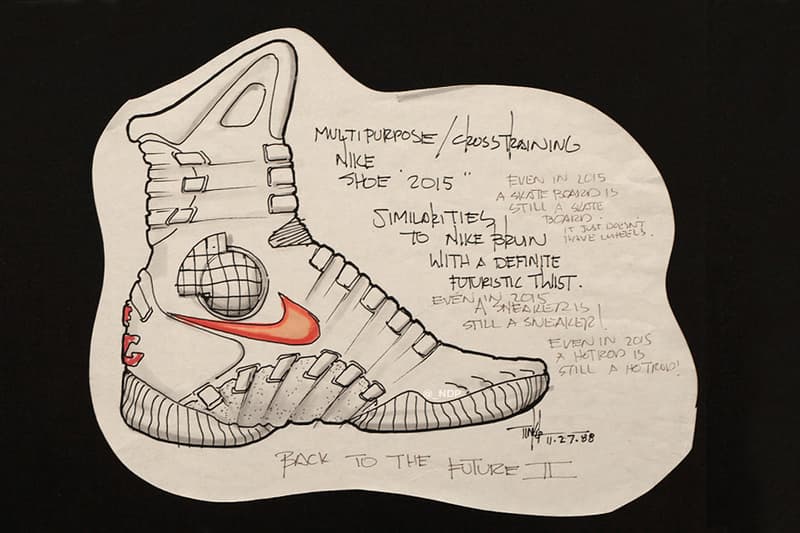 MULTIPURPOSE/CROSSTRAINING
NIKE
SHOE "2015"
EVEN IN 2015
A SKATE BOARD IS
STILL A SKATE
BOARD.
IT JUST DOESN'T
HAVE WHEELS.
SIMILARITIES
TO NIKE BRUIN
WITH A DEFINITE
FUTURISTIC TWIST.
EVEN IN 2015
A SNEAKER IS
STILL A SNEAKER!
EVEN IN 2015
A HOTROD IS
STILL A HOTROD!
@_NDP
11.27.88
BACK TO THE FUTURE II